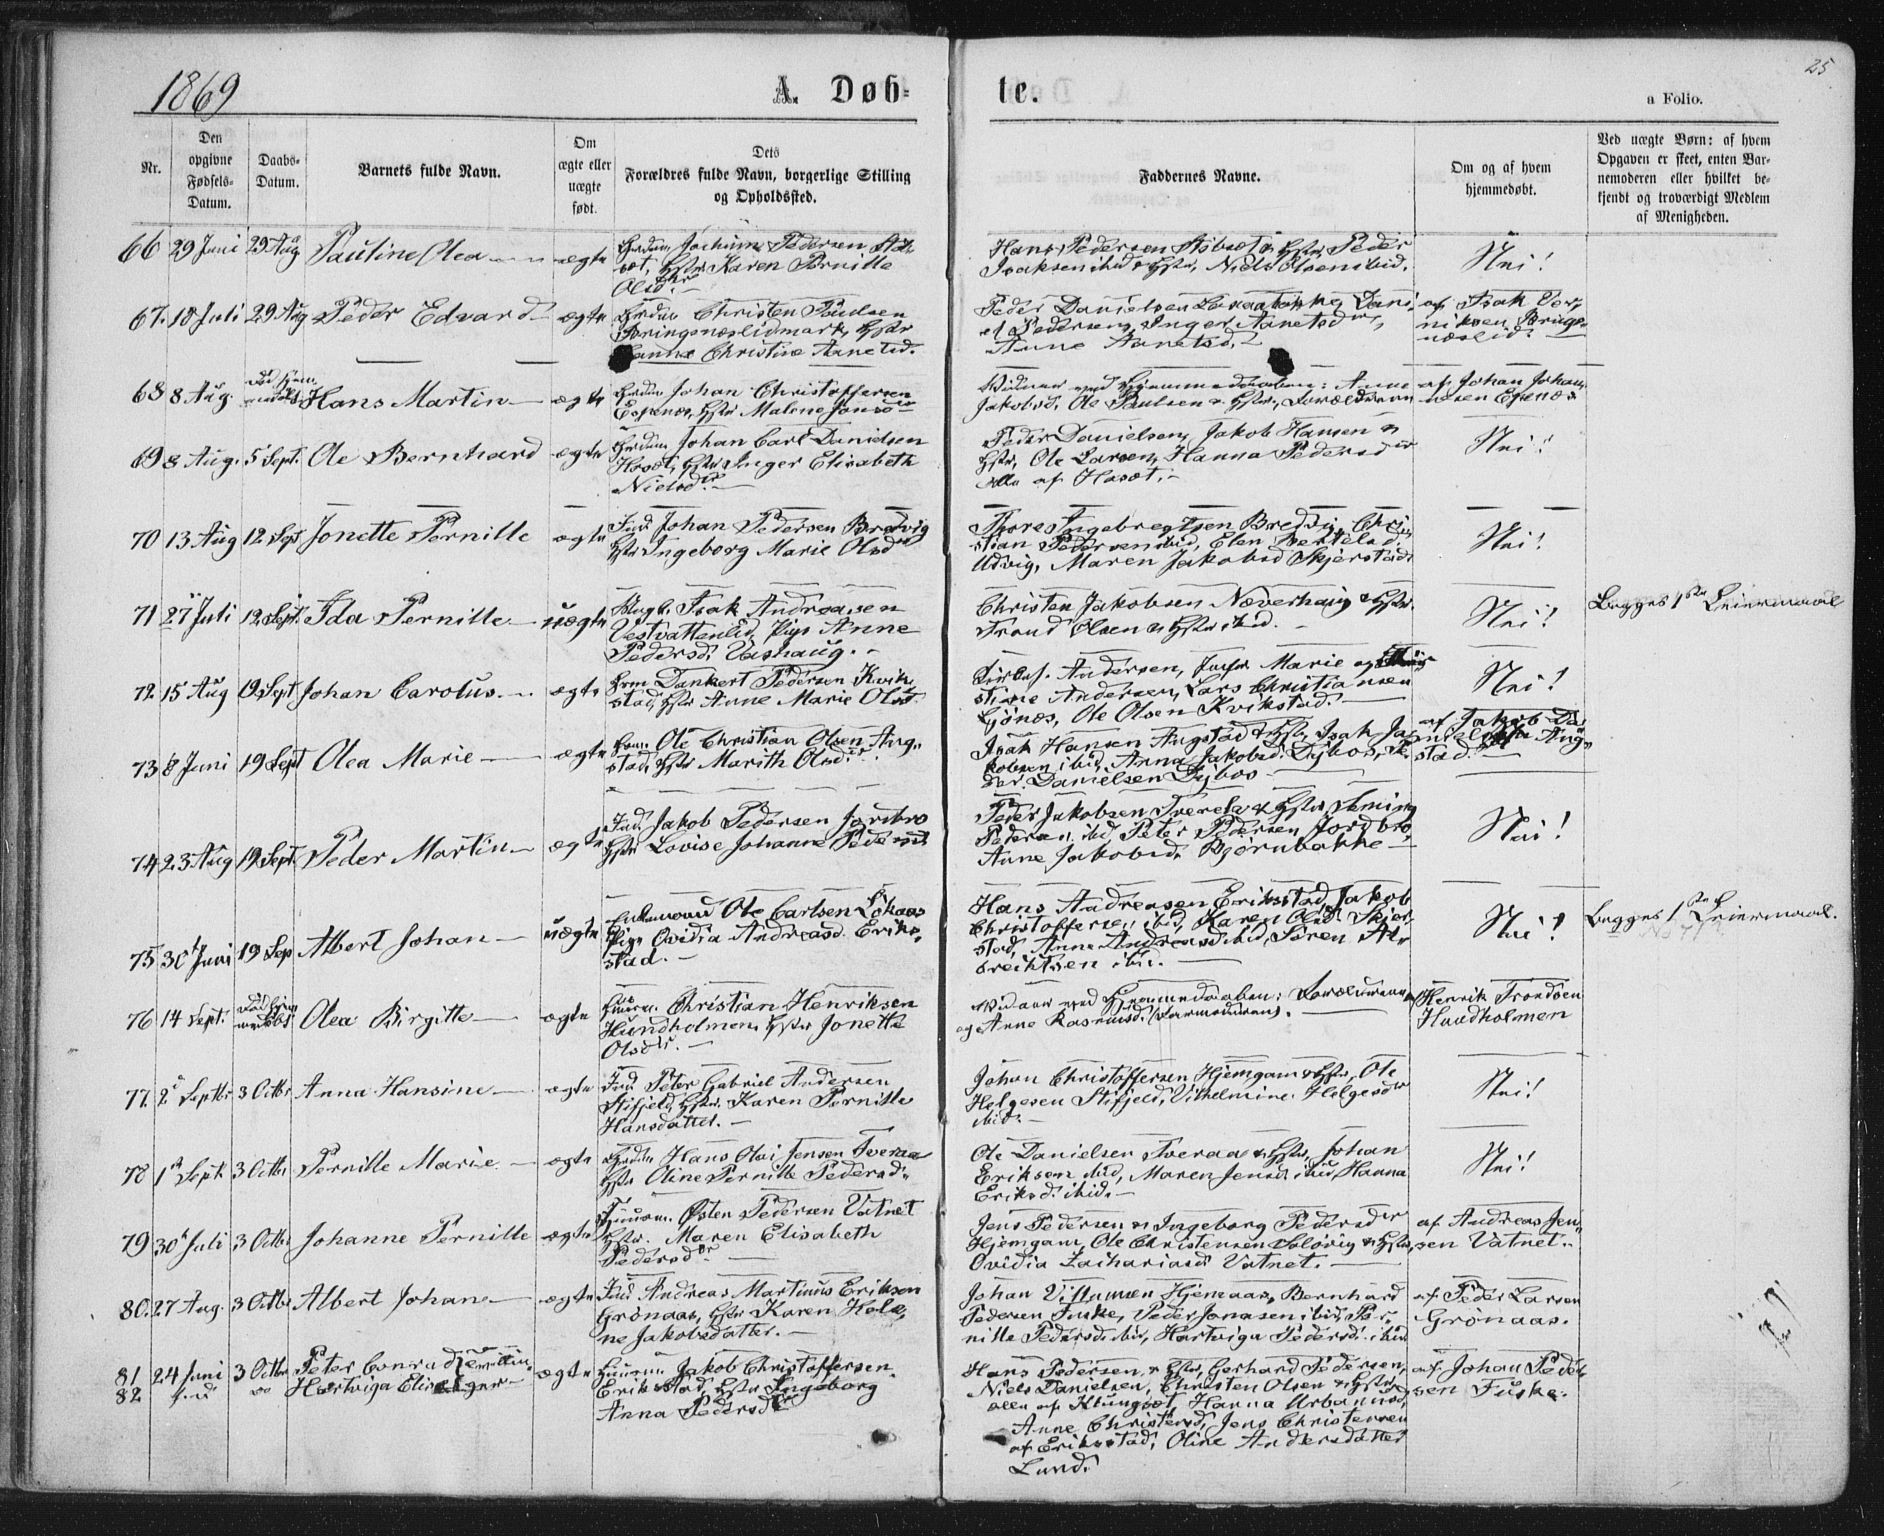 1869
A. Døb-
te.
25
a Folio.
Nr.
Den opgivne Fødsels-Datum.
Daabs-Datum.
Barnets fulde Navn.
Om ægte eller uægte født.
Dets Forældres fulde Navn, borgerlige Stilling og Opholdssted.
Faddernes Navne.
Om og af hvem hjemmedøbt.
Ved uægte Børn: af hvem Opgaven er skeet, enten Barnemoderen eller hvilket bekjendt og troværdigt Medlem af Menigheden.
66 29 Juni 29 Aug Pauline Olea ægte
Jochum Pedersen
Karen Pernille
Hans Pedersen Peder
Isaksen ibid & Hstr, Niels Olsen ibid.
Nei!
67. 18 Juli 29 Aug Peder Edvard ægte
Christen Paulsen
Hanna Christine Arnetsd.
Peder Danielsen
Pedersen, Inger Arnetsd,
Anne Arnetsd,
af Isak
68 8 Aug. Hans Martin ægte
Johan Christoffersen
Espenæs, Hstr Malene Jonsd
Vidner ved Hjemmedaaben: Anne
Jakobsd. Ole Paulsen & Hstr, Forældrene
af Johan Johannesen
69 8 Aug. 5 Sept. Ole Bernhard ægte
Johan Carl Danielsen
Hstr Inger Elisabeth
Nielsd.
Peder Danielsen, Jakob Hansen &
Hstr, Ole Larsen, Hanna Pedersd
alle af Hosæt.
Nei!
70 13 Aug 12 Sept Jonette Pernille ægte
Ind. Johan Pedersen Bredvig
Hstr Ingeborg Marie Olsd
Thore Ingebregtsen Bredvig, Christian
Pedersen ibid, Elen
Udvig, Maren Jakobsd Skjerstad
Nei!
71 27 Juli 12 Sept. Ida Pernille uægte
Isak Andreasen
Vestvattenlid, Pige Anne
Pedersd. Vashaug.
Christen Jakobsen Næverhaug & Hstr.
Trond Olsen & Hstr ibid.
Nei!
Begges 1ste Leiermaal
72 15 Aug 19 Sept Johan Carolus ægte
Dankert Pedersen Kvikstad,
Hstr Anne Marie Olsd.
Andersen, Marie og
Andersen, Lars Christiansen
Ole Olsen Kvikstad.
Nei!
73 8 Juni 19 Sept Olea Marie ægte
Ole Christian Olsen Augstad,
Hstr Marith Olsd.
Isak Hansen Augstad & Hstr, Isak Jakobsen
ibid, Anna Jakobsd. Dybos, Peder
Danielsen Dybos
af Jakob
Augstad.
74 23 Aug 19 Sept. Peder Martin ægte
Ind. Jakob Pedersen Jordbro
Hstr Lovise Johanne Pedersd
Peder Jakobsen & Hstr,
Pedersen ibid, Peter Pedersen Jordbro,
Anne Jakobsd. Bjørnbakke
Nei!
75 30t Juni 19 Sep Albert Johan uægte
Ole Carlsen
Pige Ovidia Andreasd. Erikstad.
Hans Andreasen Erikstad, Jakob
Christoffersen ibid, Karen Olsd. Skjerstad,
Anne Andreasd ibid, Søren
ibid.
Nei!
Begges 1ste Leiermaal.
76 14 Sept. Olea Birgitte ægte
Christian Henriksen
Hundholmen, Hstr Jonette
Olsd.
Vidner ved Hjemmedaaben: Forældrene
og Anne Rasmusd.
Henrik Trondsen
Hundholmen
77. 2d Septbr 3 Octbr Anna Hansine ægte
Ind. Peter Gabriel Andersen
Stifjeld, Hstr. Karen Pernille
Hansdatter.
Johan Christoffersen Hjemgam & Hstr, Ole
Helgesen Stifjeld, Vilhelmine Helgesd
ibid.
Nei!
78 1st Sept. 3 Octbr Pernille Marie ægte
Hans Jensen Tveraa
Hstr Oline Pernille Pedersd.
Ole Danielsen Tveraa & Hstr, Johan
Eriksen ibid, Maren Jensd. ibid, Hanna
Eriksd. ibid.
Nei!
79 30t Juli 3 Octbr Johanne Pernille ægte
Østen Pedersen Vatnet
Hstr. Maren Elisabeth
Pedersd
Jens Pedersen & Ingeborg Pedersd
Hjemgam, Ole Christensen & Hstr,
Ovidia Zachariasd Vatnet.
af Andreas Jensen
Vatnet.
80. 27 Aug. 3 Octbr Albert Johan ægte
Ind Andreas Martinus Eriksen
Grønaas, Hstr Karen Helene
Jakobsdatter.
Johan Villumsen Hjemaas, Bernhard
Pedersen Fuske, Peder Jonasen ibid, Pernille
Pedersd. ibid, Hartviga Pedersd. ibid
af Peder Larsen
Grønaas.
81 24 Juni 3 Octbr Peter Conrad
82 Hartviga ægte
Jakob Christoffersen
Erikstad, Hstr Ingeborg
Anna Pedersd
Hans Pedersen & Hstr, Gerhard Pedersen,
Niels Danielsen, Christen Olsen & Hstr
alle af Klungset, Hanna Urbanusd,
Anne Christensd, Jens Christensen
af Erikstad, Oline Andersdatter
Lund.
af Johan Pedersen
Fuske.